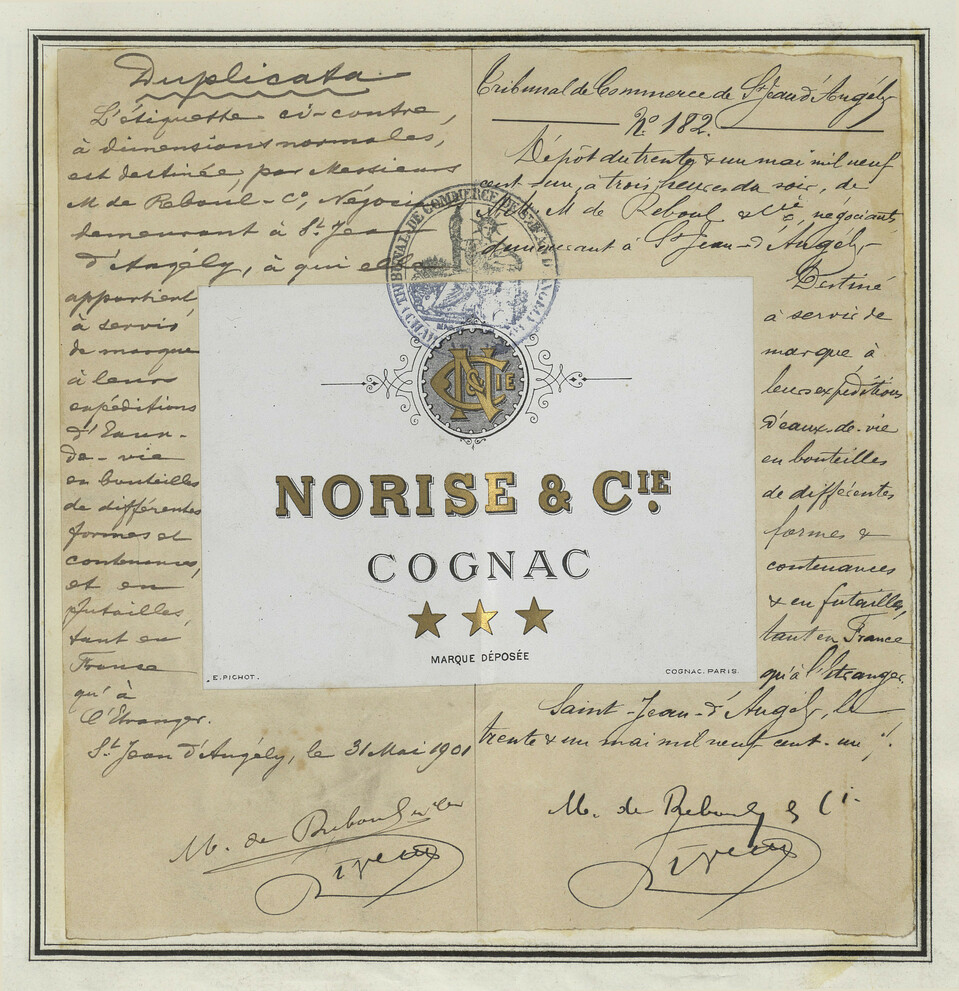 Duplicata
L'étiquette ci-contre,
à dimensions normales,
est destinée, par Messieurs
M de Reboul - Co, Négoci
demeurant à St Jean
d'Angély, à qui elle
appartient,
à servir,
de marque
à leurs
expéditions
d'Eaux-
de-vie
en bouteilles
de différentes
formes et
contenances,
et en
futailles,
tant en
France
qu'à
l'Etranger.
St Jean d'Angély, le 31 Mai 1901
M. de Reboul
Tribunal de Commerce de St Jean d'Angély
No 182.
Dépôt du trente & un mai mil neuf
cent-un, à trois heures du soir, de
M de Reboul & Cie, négociants,
demeurant à St Jean-d'Angély
Destiné
à servir de
marque à
leurs expéditions
d'eaux-de-vie
en bouteilles
de différentes
formes &
contenances
& en futailles,
tant en France
qu'à l'Etranger.
Saint-Jean-d'Angély, le
trente & un mai mil neuf cent-un
M. de Reboul & Ci
TRIBUNAL DE COMMERCE DE
C & N CIE
NORISE & CIE.
COGNAC
MARQUE DÉPOSÉE
E. PICHOT.
COGNAC. PARIS.